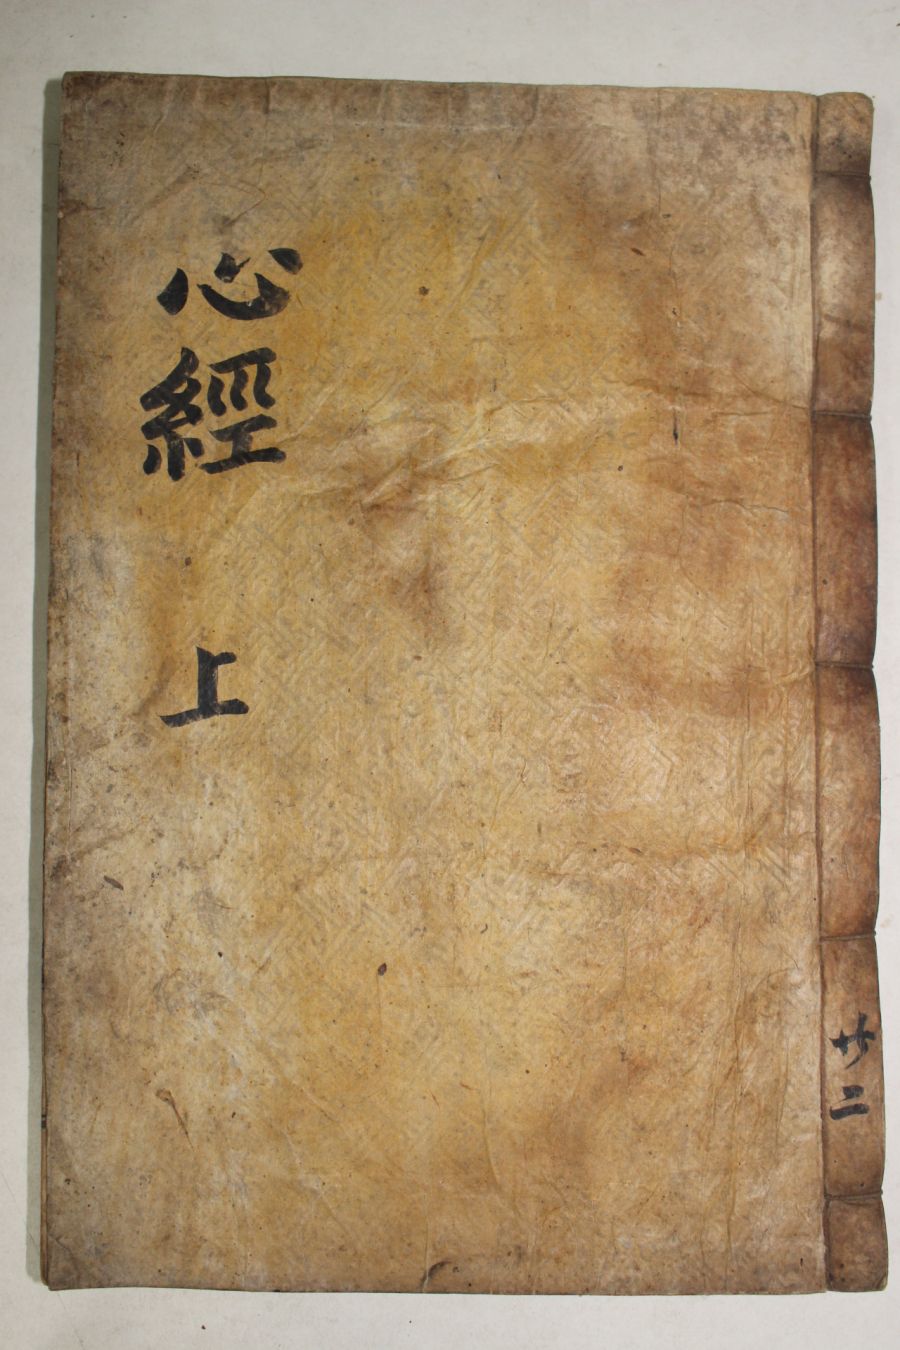 心經 上
共二